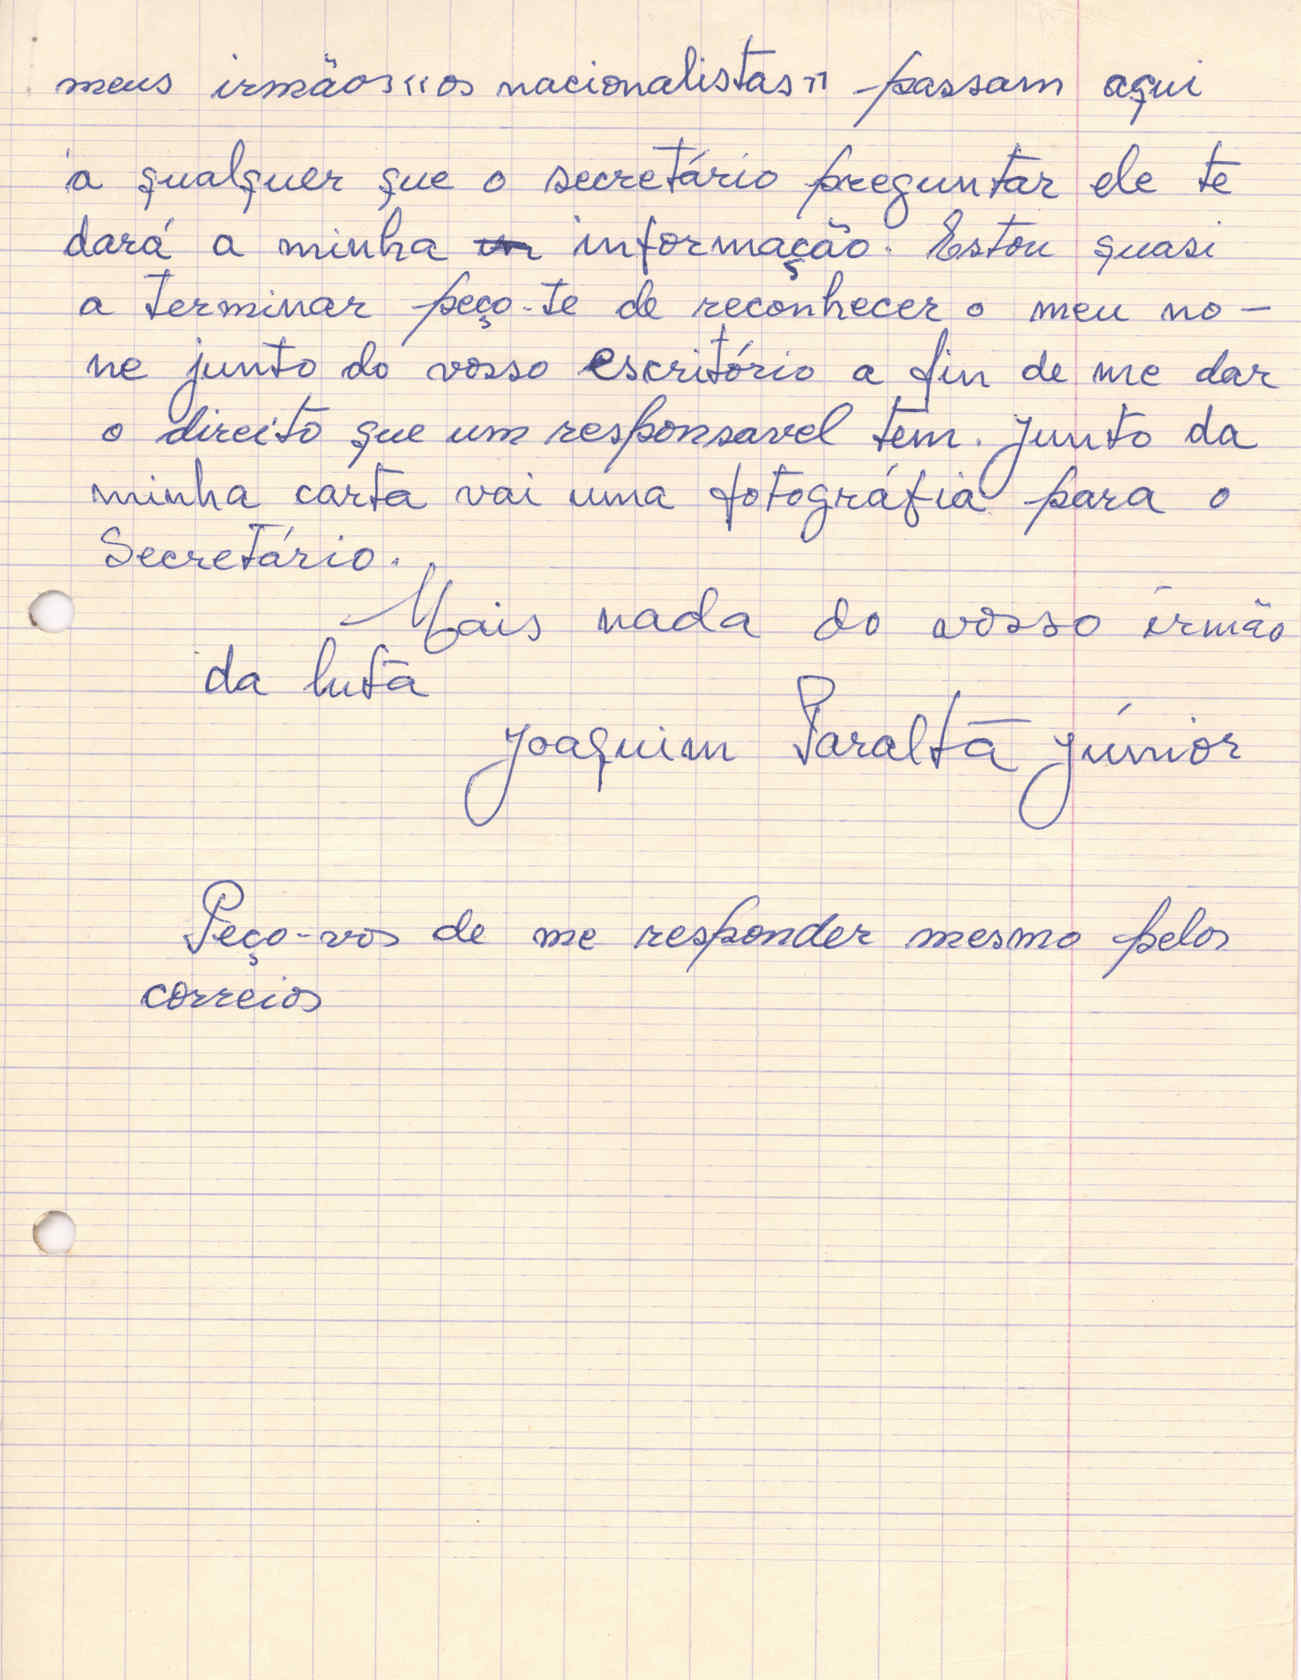 meus irmãos «os nacionalistas» passam aqui
a qualquer que o secretário preguntar ele te
dará a minha informação. Estou quasi
a terminar peço-te de reconhecer o meu no-
ne junto do vosso escritório a fin de me dar
o direito que um responsavel tem. Junto da
minha carta vai uma fotográfia para o
Secretário.
Mais nada do vosso irmão
da luta
Joaquim Paralta Júnior
Peço-vos de me responder mesmo pelos
correios